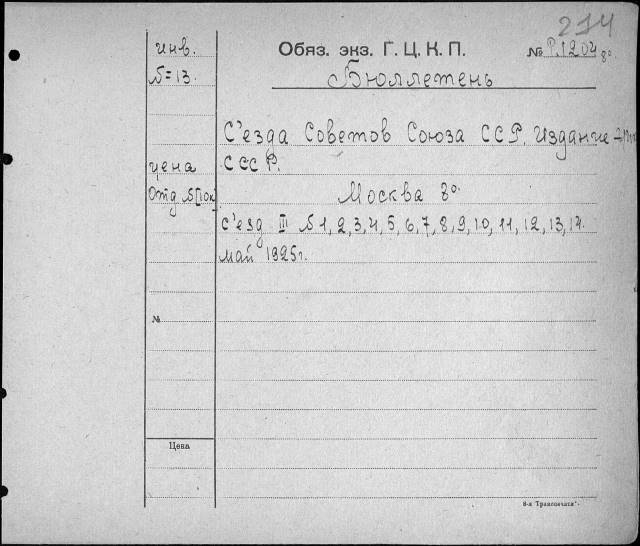 214
инв. Обяз. экз. Г. Ц. К. П. № Р.1204 8°
№=13. Бюллетень
С'езда Советов Союза ССР. Издание
цена СССР.
Отд № Москва 8°.
С'езд III № 1, 2, 3, 4, 5, 6, 7, 8, 9, 10, 11, 12, 13, 14.
май 1925г.
№
Цена
8-я „Транспечати“.